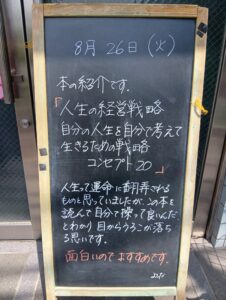 8月26日(火)
本の紹介です。
「人生の経営戦略
自分の人生を自分で考えて
生きるための戦略
コンセプト20」
人生って運命に翻弄される
ものと思っていましたが、この本を
読んで自分で操って良いんだ
とわかり目からうろこが落ち
る思いです。
面白いのでおすすめです。